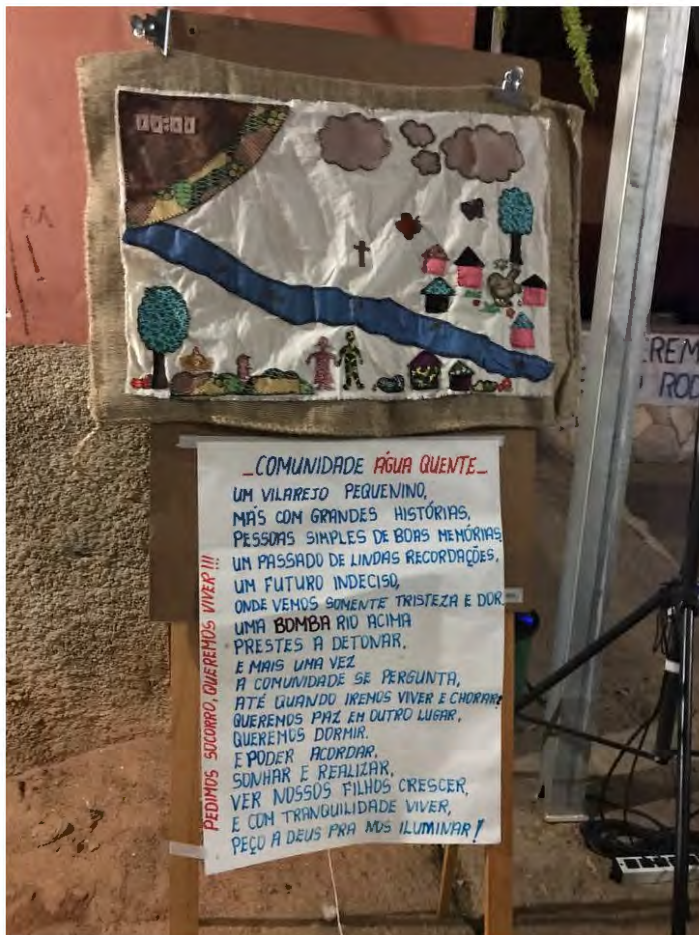 _COMUNIDADE ÁGUA QUENTE_
UM VILAREJO PEQUENINO,
MÁS COM GRANDES HISTÓRIAS,
PESSOAS SIMPLES DE BOAS MEMÓRIAS,
UM PASSADO DE LINDAS RECORDAÇÕES,
UM FUTURO INDECISO,
ONDE VEMOS SOMENTE TRISTEZA E DOR
UMA BOMBA RIO ACIMA
PRESTES A DETONAR,
E MAIS UMA VEZ
A COMUNIDADE SE PERGUNTA,
ATÉ QUANDO IREMOS VIVER E CHORAR?
QUEREMOS PAZ EM OUTRO LUGAR,
QUEREMOS DORMIR.
E PODER ACORDAR,
SONHAR E REALIZAR,
VER NOSSOS FILHOS CRESCER,
E COM TRANQUILIDADE VIVER,
PEÇO A DEUS PRA NOS ILUMINAR!
PEDIMOS SOCORRO, QUEREMOS VIVER!!!
EREM
ROD